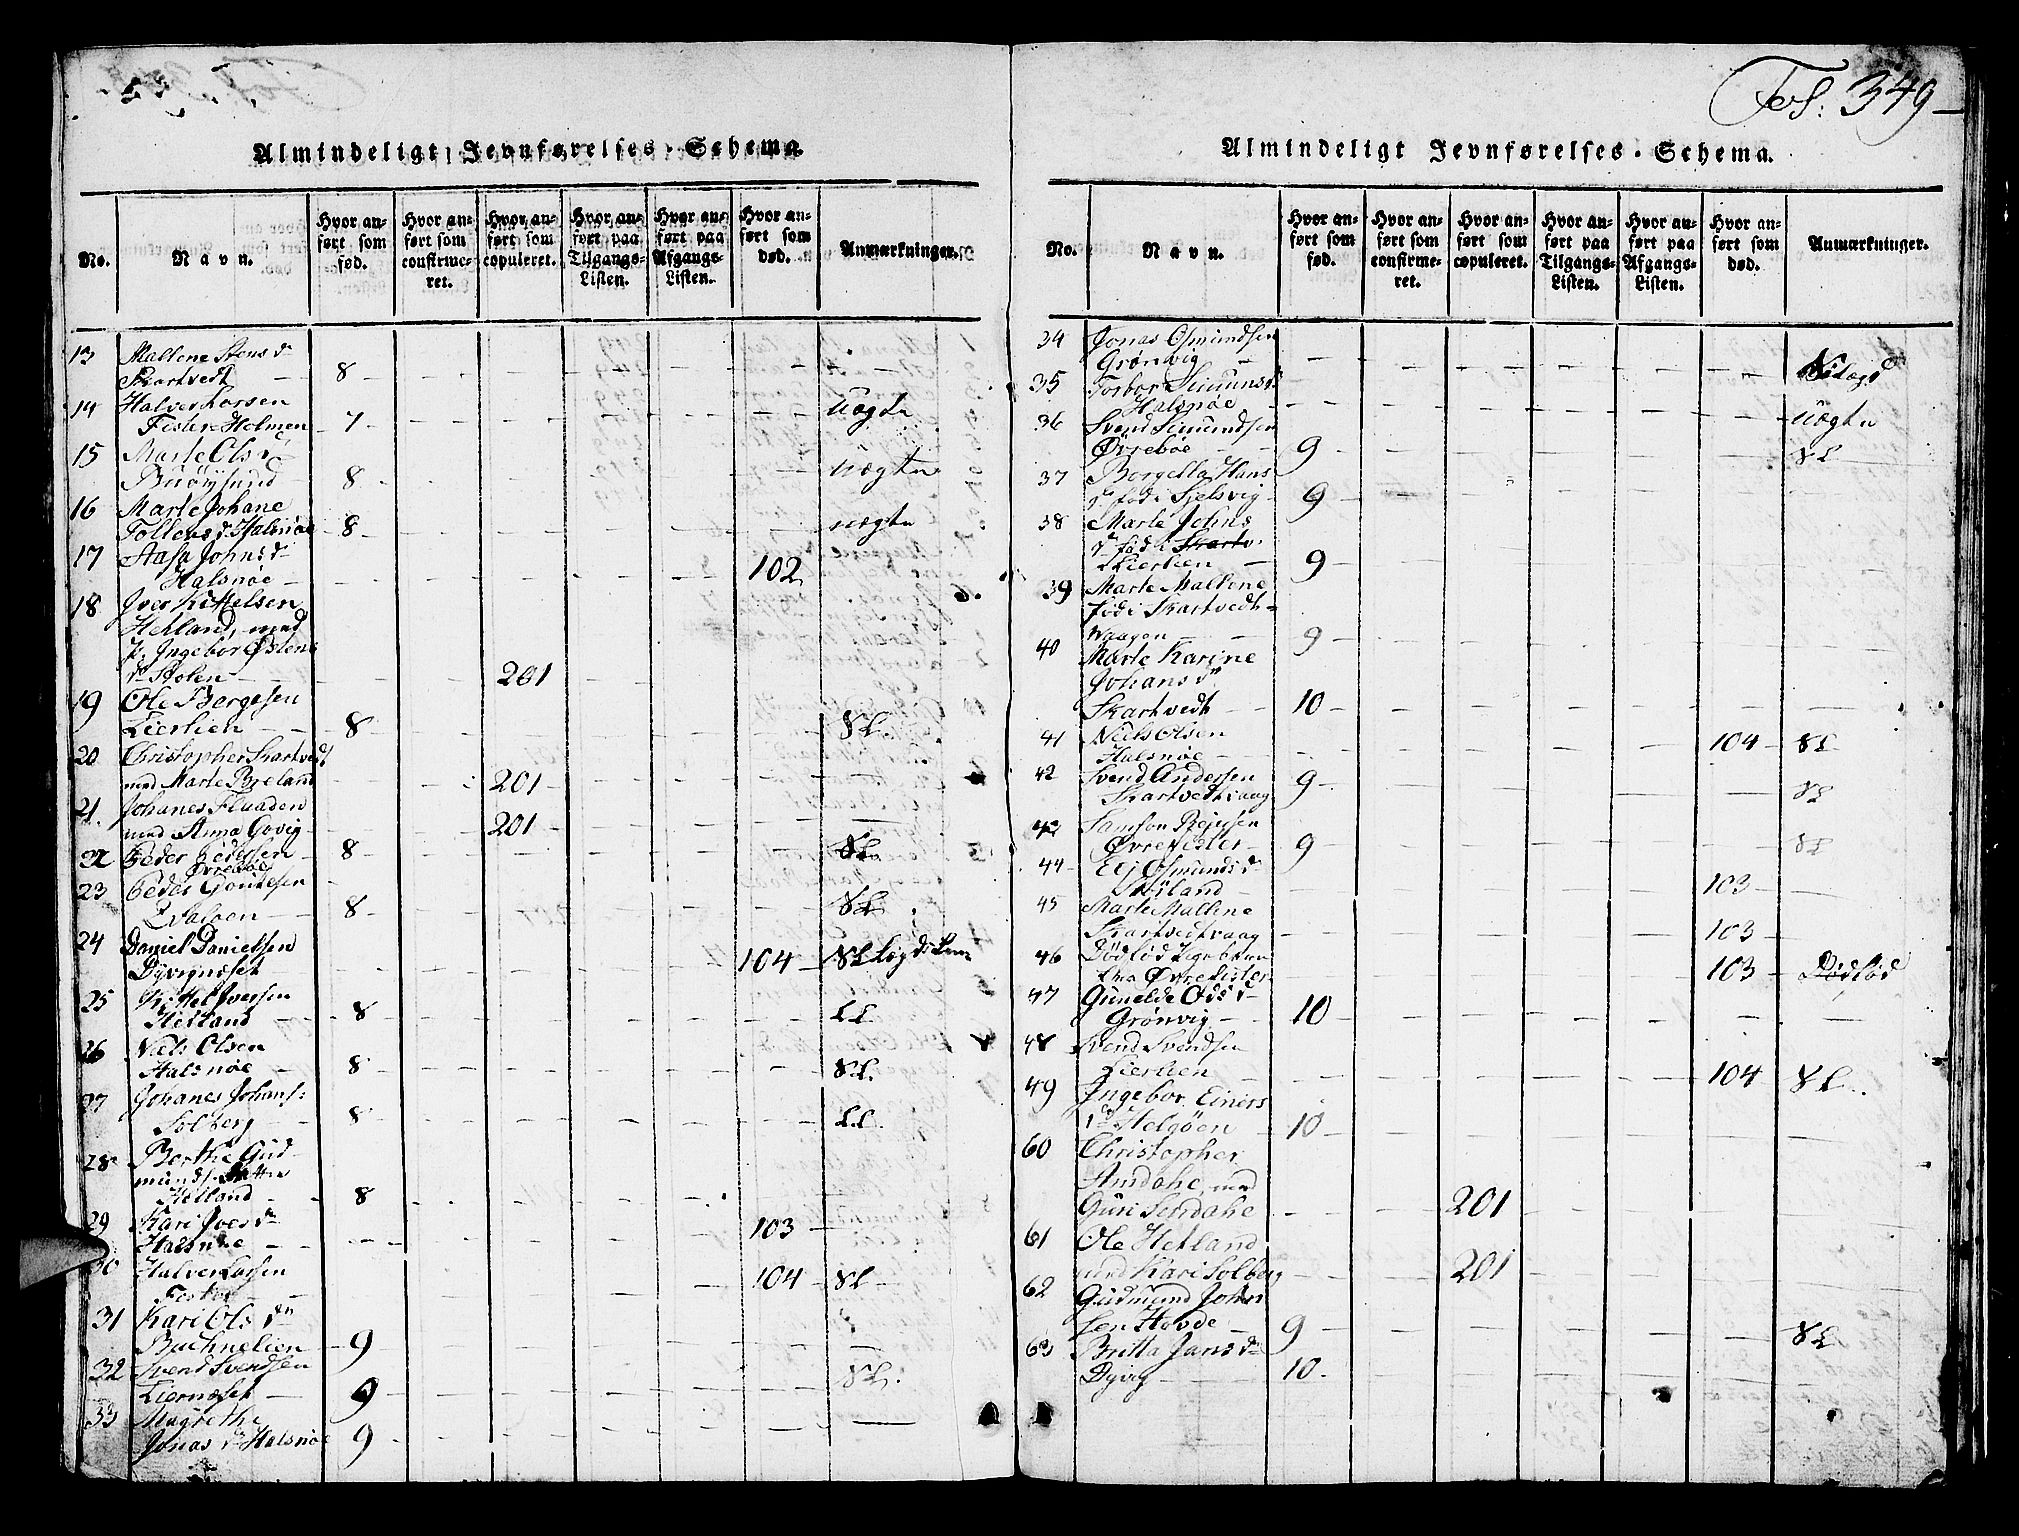 Fol: 349
Almindeligt Jevnførelses-Schema.
No.
Navn.
Hvor anført som fød.
Hvor anført som confirmeret.
Hvor anført som copuleret.
Hvor anført paa Tilgangs-Listen.
Hvor anført paa Afgangs-Listen.
Hvor anført som død.
Anmærkninger.
13 Mallene Stens dr
Skartvedt — 8 -
14 Halver Larsen
Fister Holmen 7 - uægte
15 Marte Ols dr
Buøysund 8 uægte
16 Marte Johane
Tollevs dr Halsnøe 8 uægte
17 Johns dr
Halsnøe — 102
18 Iver Kittelsen
Hetland, med
p. Ingebor Østens
dr Stolen — 201
19 Ole Bergesen
Lierlien — 8 SL
20 Christopher Skartvedt
med Marte Breland 201
21 Johanes Fluaden
med Anna Govig 201
22 Peder Pedersen 8 SL
Øvrebøe
23 Peder Goutesen
Qvaløen 8 SL
24 Daniel Danielsen
Dyvignæset 104 SL
25 Kittel Iversen
Hetland 8 LL
26 Niels Olsen
Halsnøe 8 SL.
27 Johanes Johans:
Solberg 8 LL.
28 Berthe Gud-
munds Datter
Hetland 8
29 Kari Joes dr 103
Halsnøe
30 Halver Larsen 104 SL
31 Kari Ols dr
9
32 Svend Svendsen
Liernæset 9 SL.
33 Magrethe
Jonas dr Halsnøe 9
Almindeligt Jevnførelses-Schema.
No.
Navn.
Hvor anført som fød.
Hvor anført som confirmeret.
Hvor anført som copuleret.
Hvor anført paa Tilgangs-Listen.
Hvor anført paa Afgangs-Listen.
Hvor anført som død.
Anmærkninger.
34 Jonas Osmundsen
Grønvig
35 Torbor Simuns dr
Halsnøe uægte
36 Svend Simundsen
Øvrebøe 9 SL
37 Borgella Hans
dr fød i Sjelsvig 9
38 Marte Johns
dr fød i Skartv.
Lierlien 9
39 Marte Mallene
fød i Skartvedt-
Waagen 9
40 Marte Karine
Johans dr
Skartvedt 10
41 Niels Olsen 104 SL
Halsnøe
42 Svend Andersen 9 SL
Skartvedtvaag
43 Samson
Øvre Fister 9 SL
44 Elj Osmunds dr
103
45 Marte Mallene
Skartvedtvaag 103
46 Dødfød
Øvre Fister 103 Dødfød
47 Gunelde Ods dr
Grønvig 10
48 Svend Svendsen
Lierlien 104 SL
49 Ingebor Einers
dr Helgøen 10
60 Christopher
Amdahe, med
Guri Sendahe 201
61 Ole Hetland
med Kari Solberg 201
62 Gudmund John
sen Hovde 9 SL
63 Britta Jans dr
Dyvig 10.